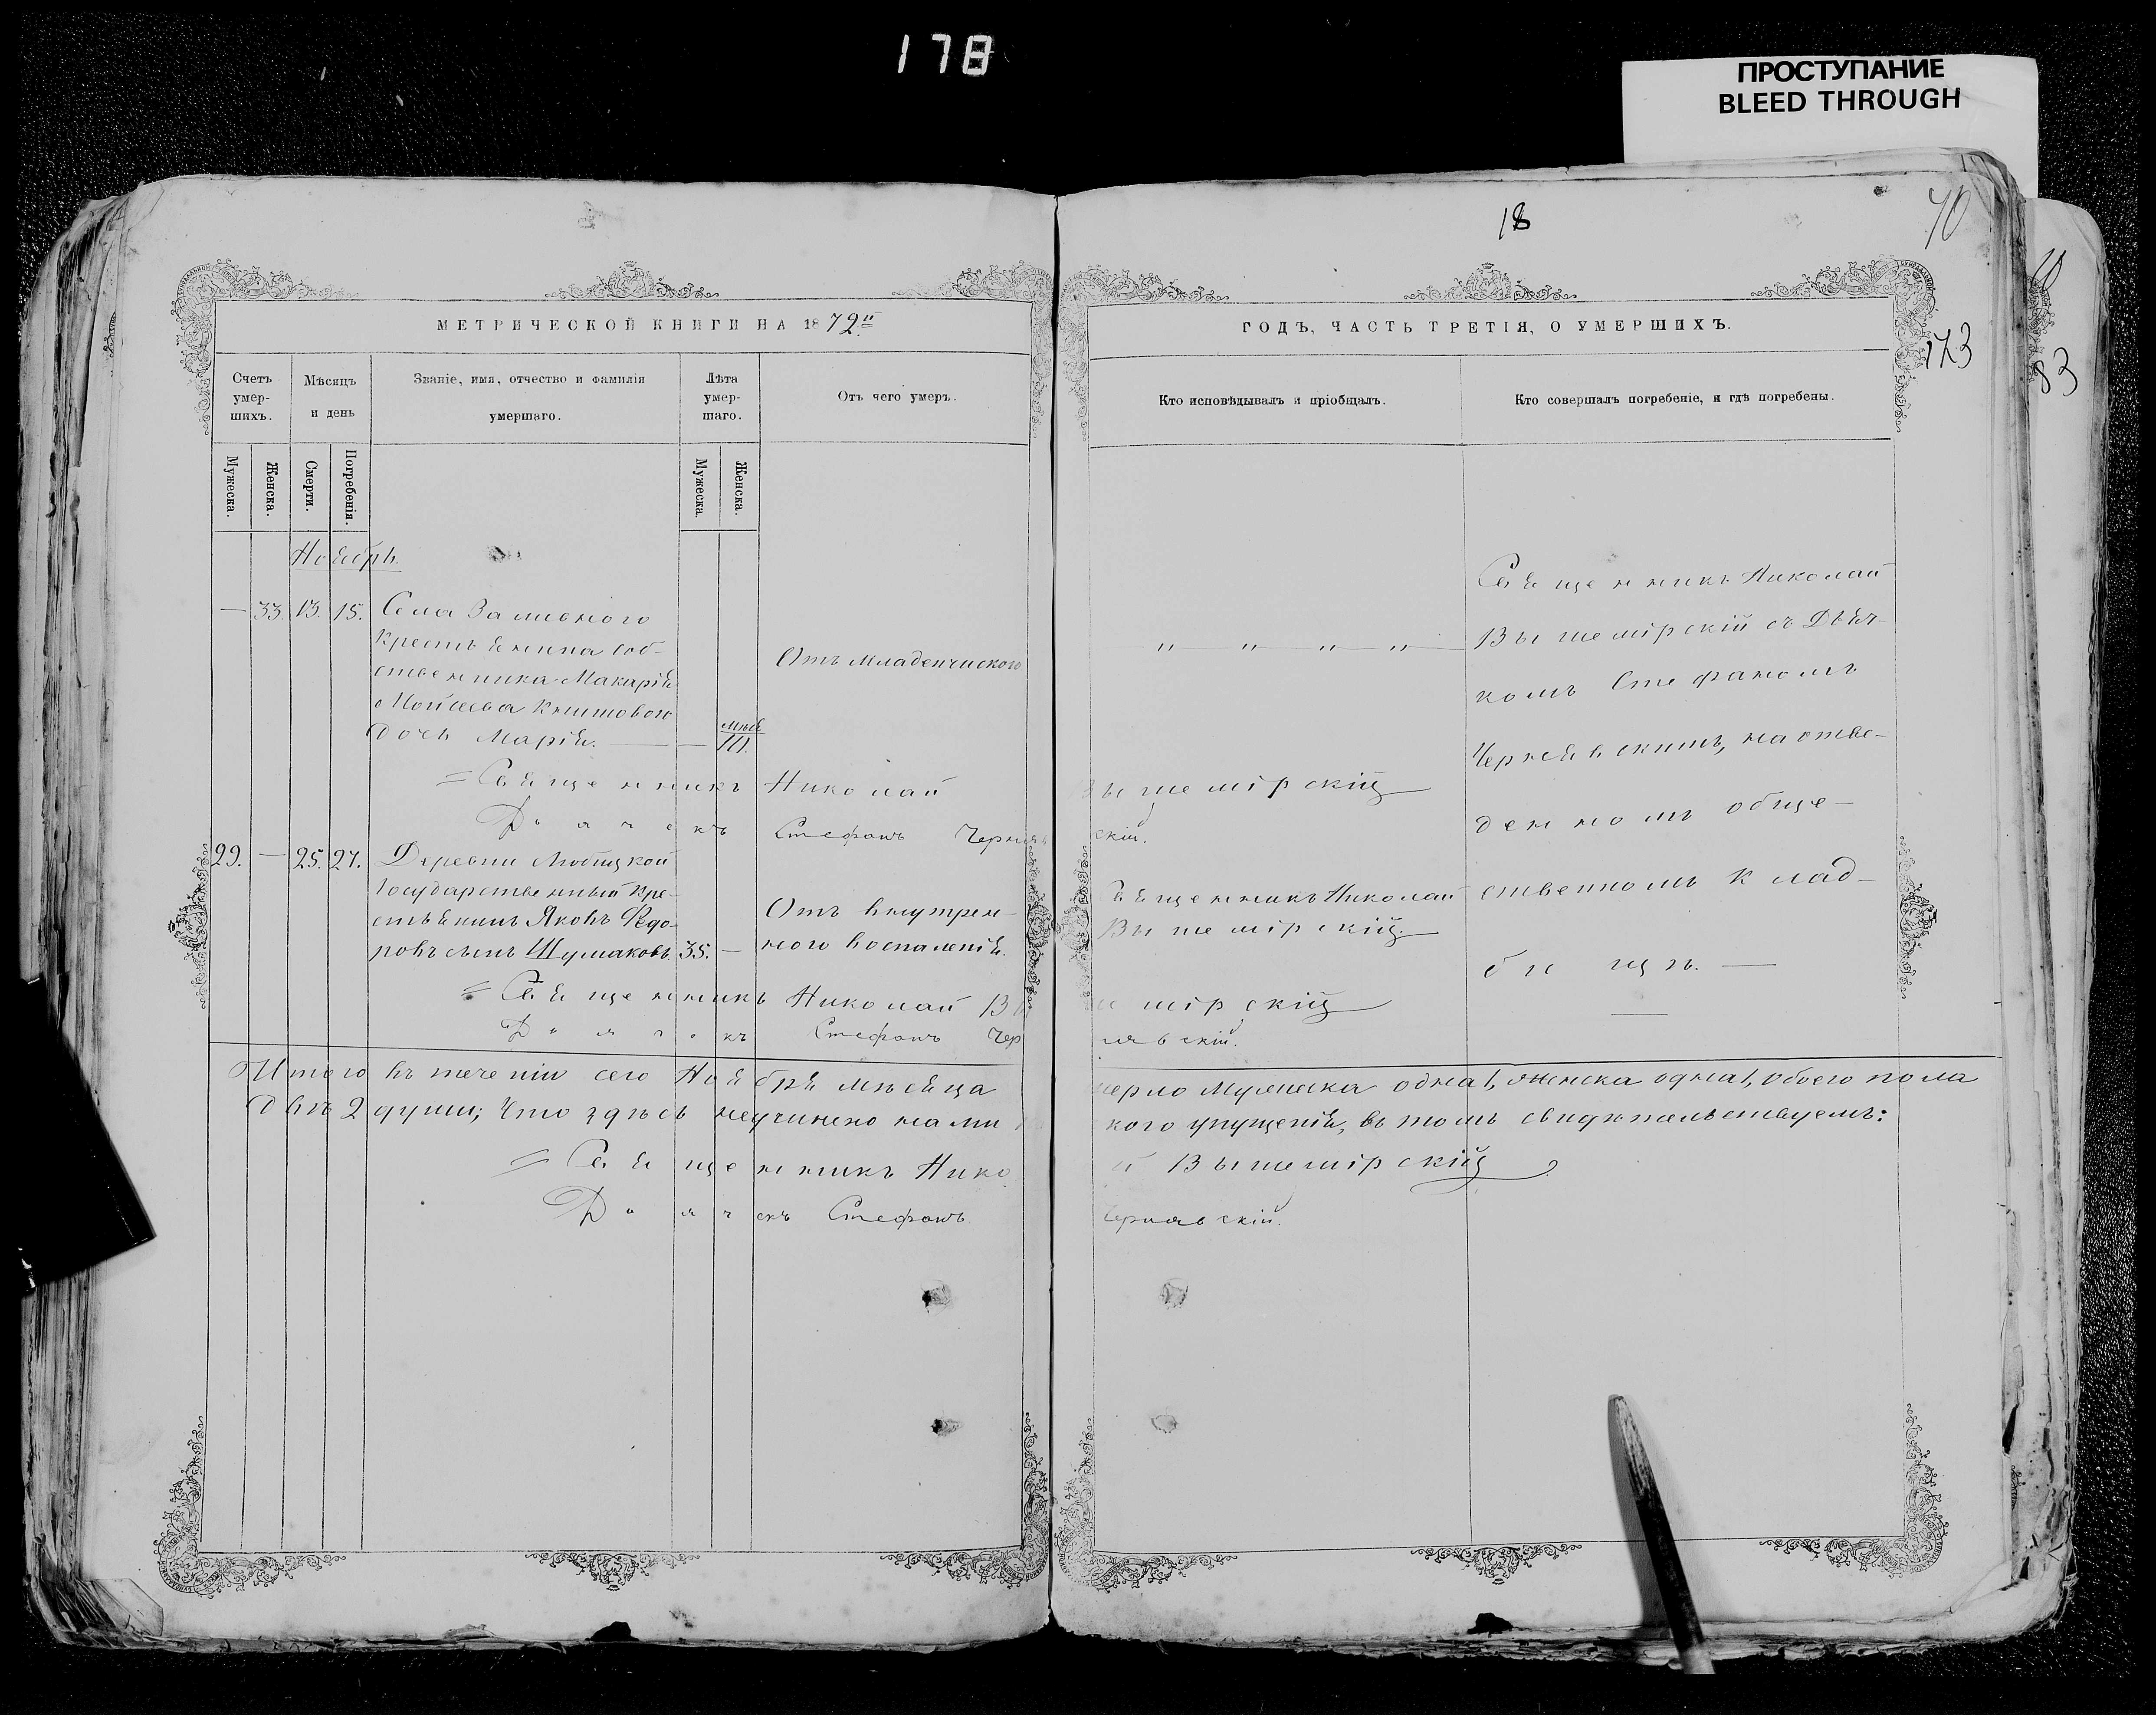 178
ПРОСТУПАНИЕ
BLEED THROUGH
18
70
МЕТРИЧЕСКОЙ КНИГИ НА 1872й
ГОДЪ, ЧАСТЬ ТРЕТІЯ, О УМЕРШИХЪ.
173
83
Счетъ умер-шихъ.
Мѣсяцъ и день
Званіе, имя, отчество и фамилія умершаго.
Лѣта умер-шаго.
Отъ чего умеръ.
Кто исповѣдывалъ и пріобщалъ.
Кто совершалъ погребеніе, и гдѣ погребены.
Мужеска.
Женска.
Смерти.
Погребенія.
Мужеска.
Женска.
Ноябрь.
— 33. 13. 15. Села Заливного
Крестьянина соб-
ственника Макарія
Моисеева
дочь Марія. — —
Отъ младенческого
" " " "
Священникъ Николай
Вышемірскій съ Дьяч-
комъ Стефаномъ
Чернявскимъ, на отве-
денномъ обще-
ственномъ клад-
бищѣ. —
= Священникъ Николай Вышемірскій
Дьячекъ Стефанъ Чернявскій.
29. — 25. 27. Деревни Любицкой
Государственный кре-
стьянинъ Яковъ Ѳедо-
ровъ сынъ Шумаковъ. 35. —
Отъ внутрен-
ного воспаленія.
Священникъ Николай
Вышемірскій.
= Священникъ Николай Вышемірскій
Дьячекъ Стефанъ Чернявскій.
Итого въ теченіи сего Ноября мѣсяца умерло Мужеска одна 1, Женска одна 1, обоего пола
двѣ 2 души; Что здѣсь неучинено нами никакого упущенія, въ томъ свидѣтельствуемъ:
= Священникъ Николай Вышемірскій
Дьячекъ Стефанъ Чернявскій.